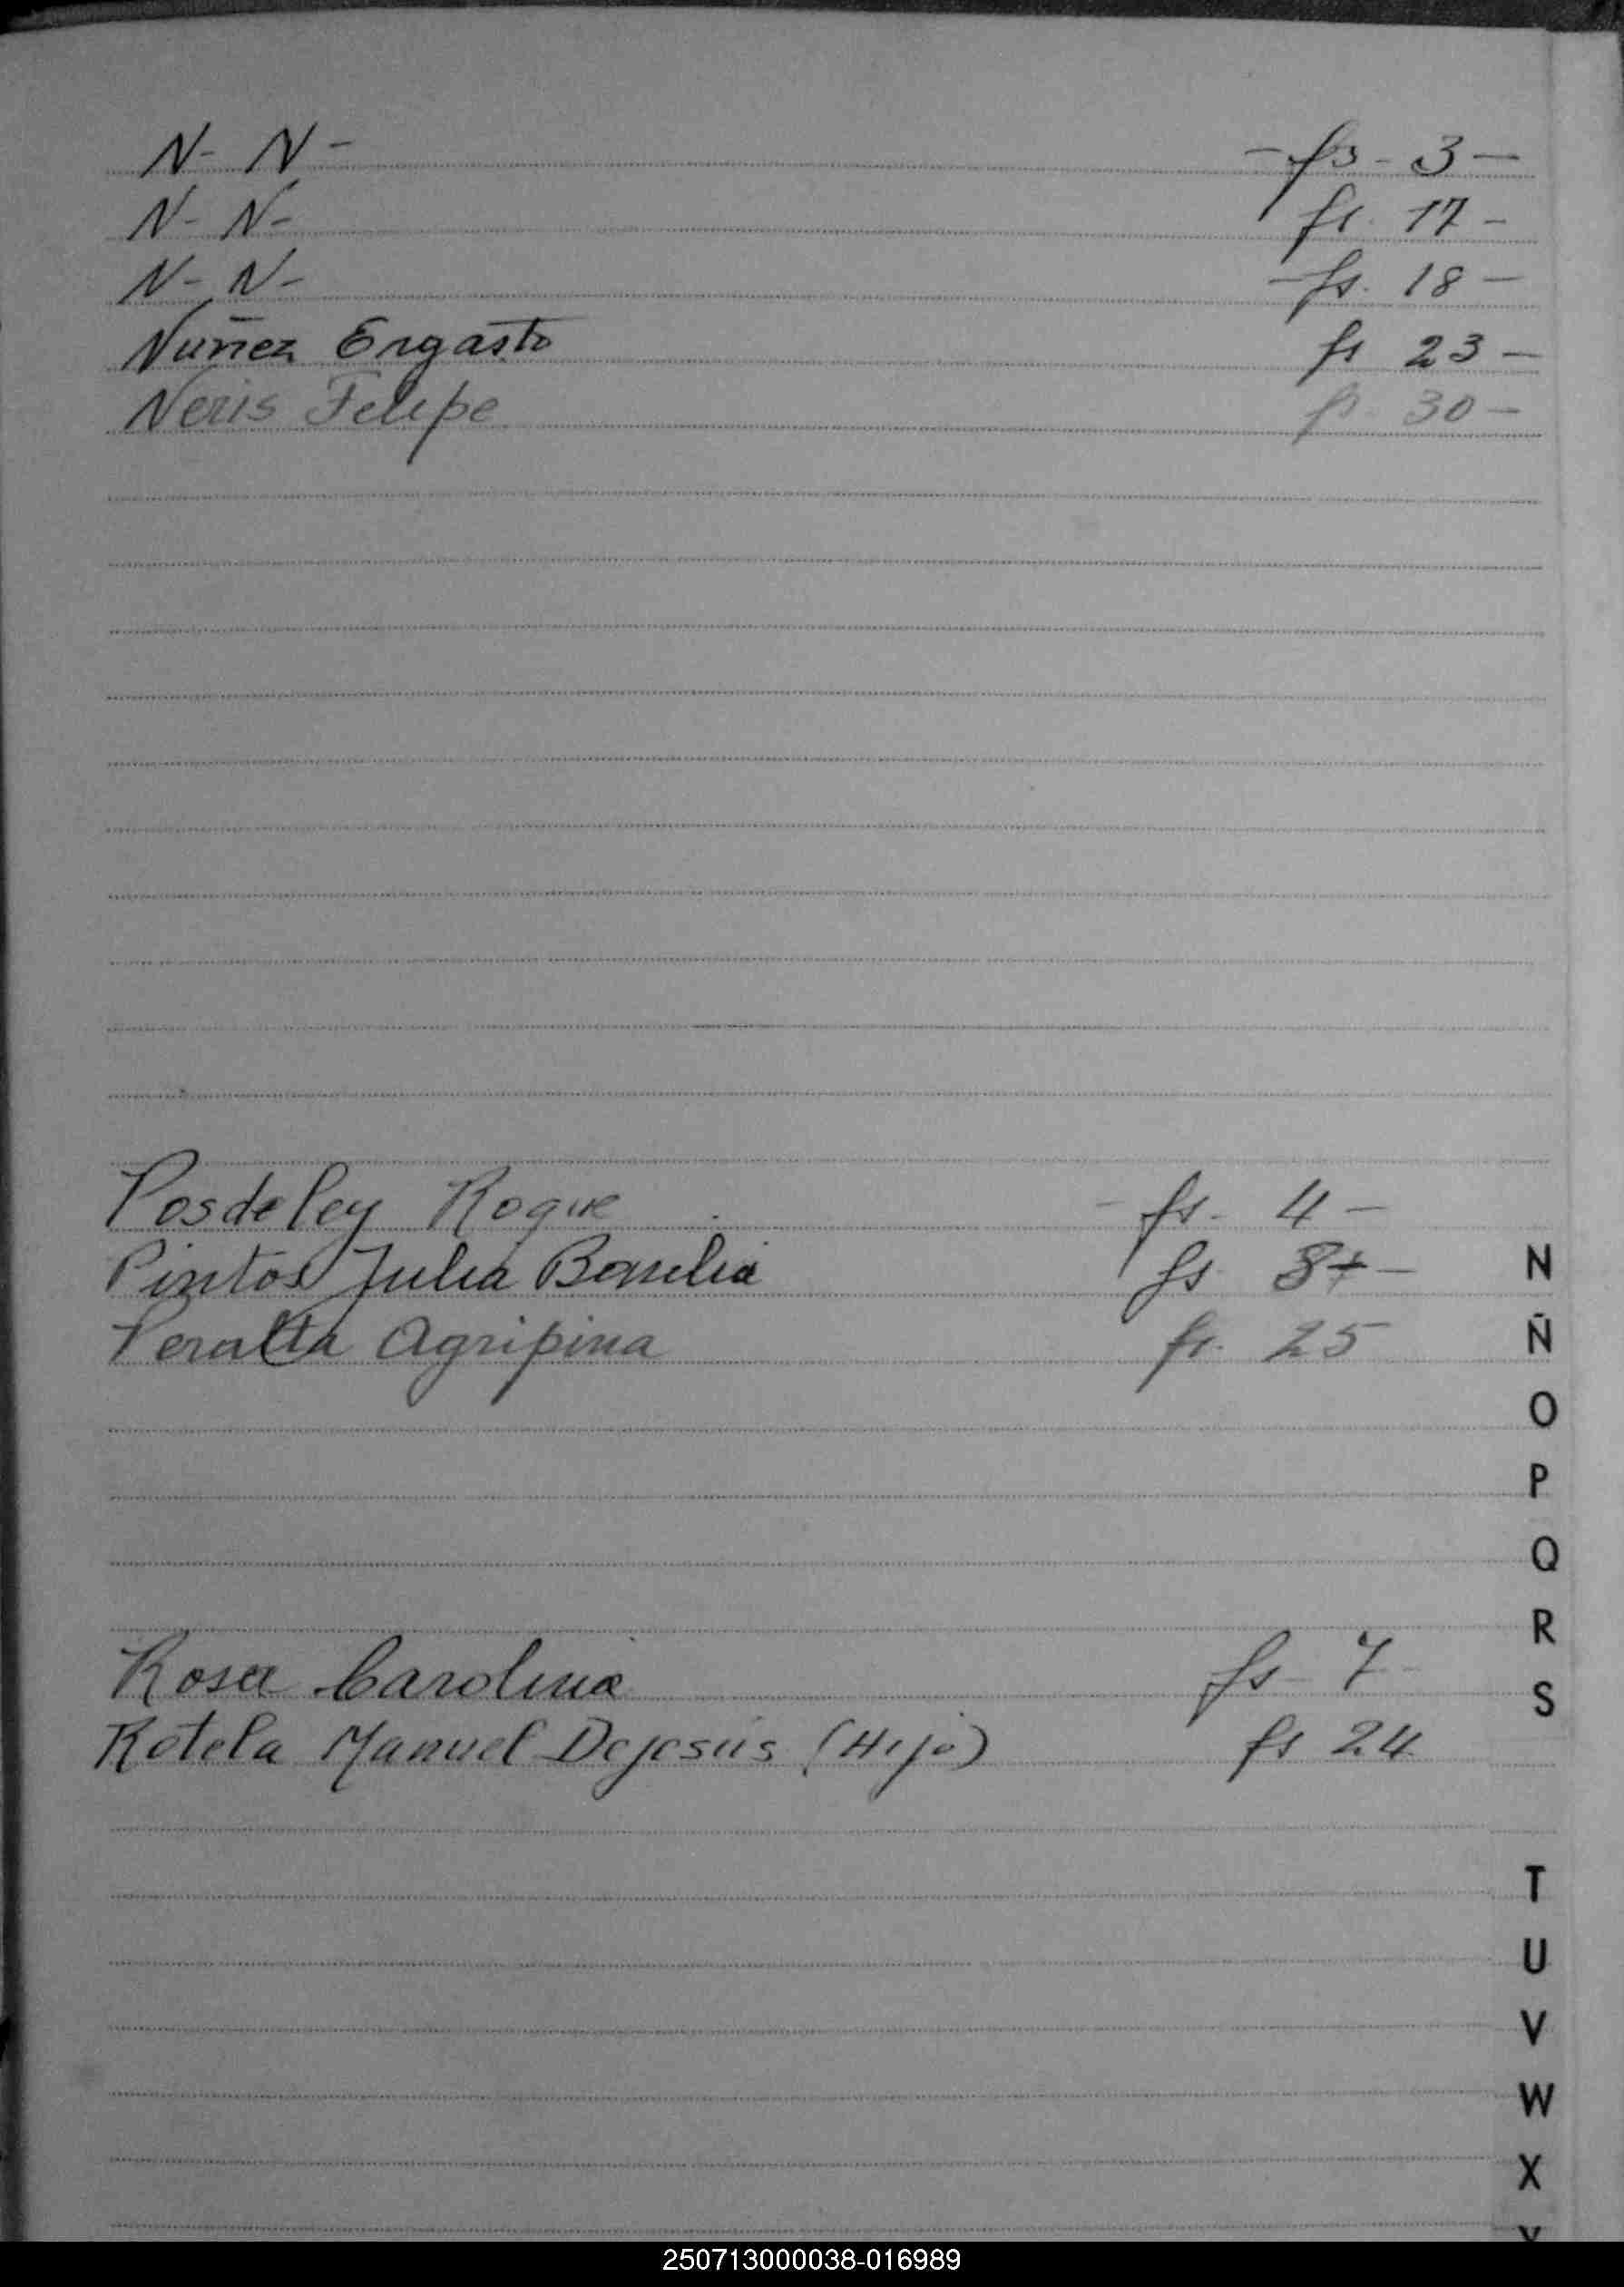 N- N- - fs - 3 -
N- N- fs. 17 -
N- N- - fs. 18 -
Nuñez Ergasto fs 23 -
Neris Felipe fs 30 -
Posdeley Roque - fs. 4 -
Pintos Julia fs
N
Peralta Agripina fs. 25
Ñ
O
P
Q
R
Rosa Carolina fs 7 -
S
Rotela Manuel Dejesús (Hijo) fs 24
T
U
V
W
X
Y
250713000038-016989